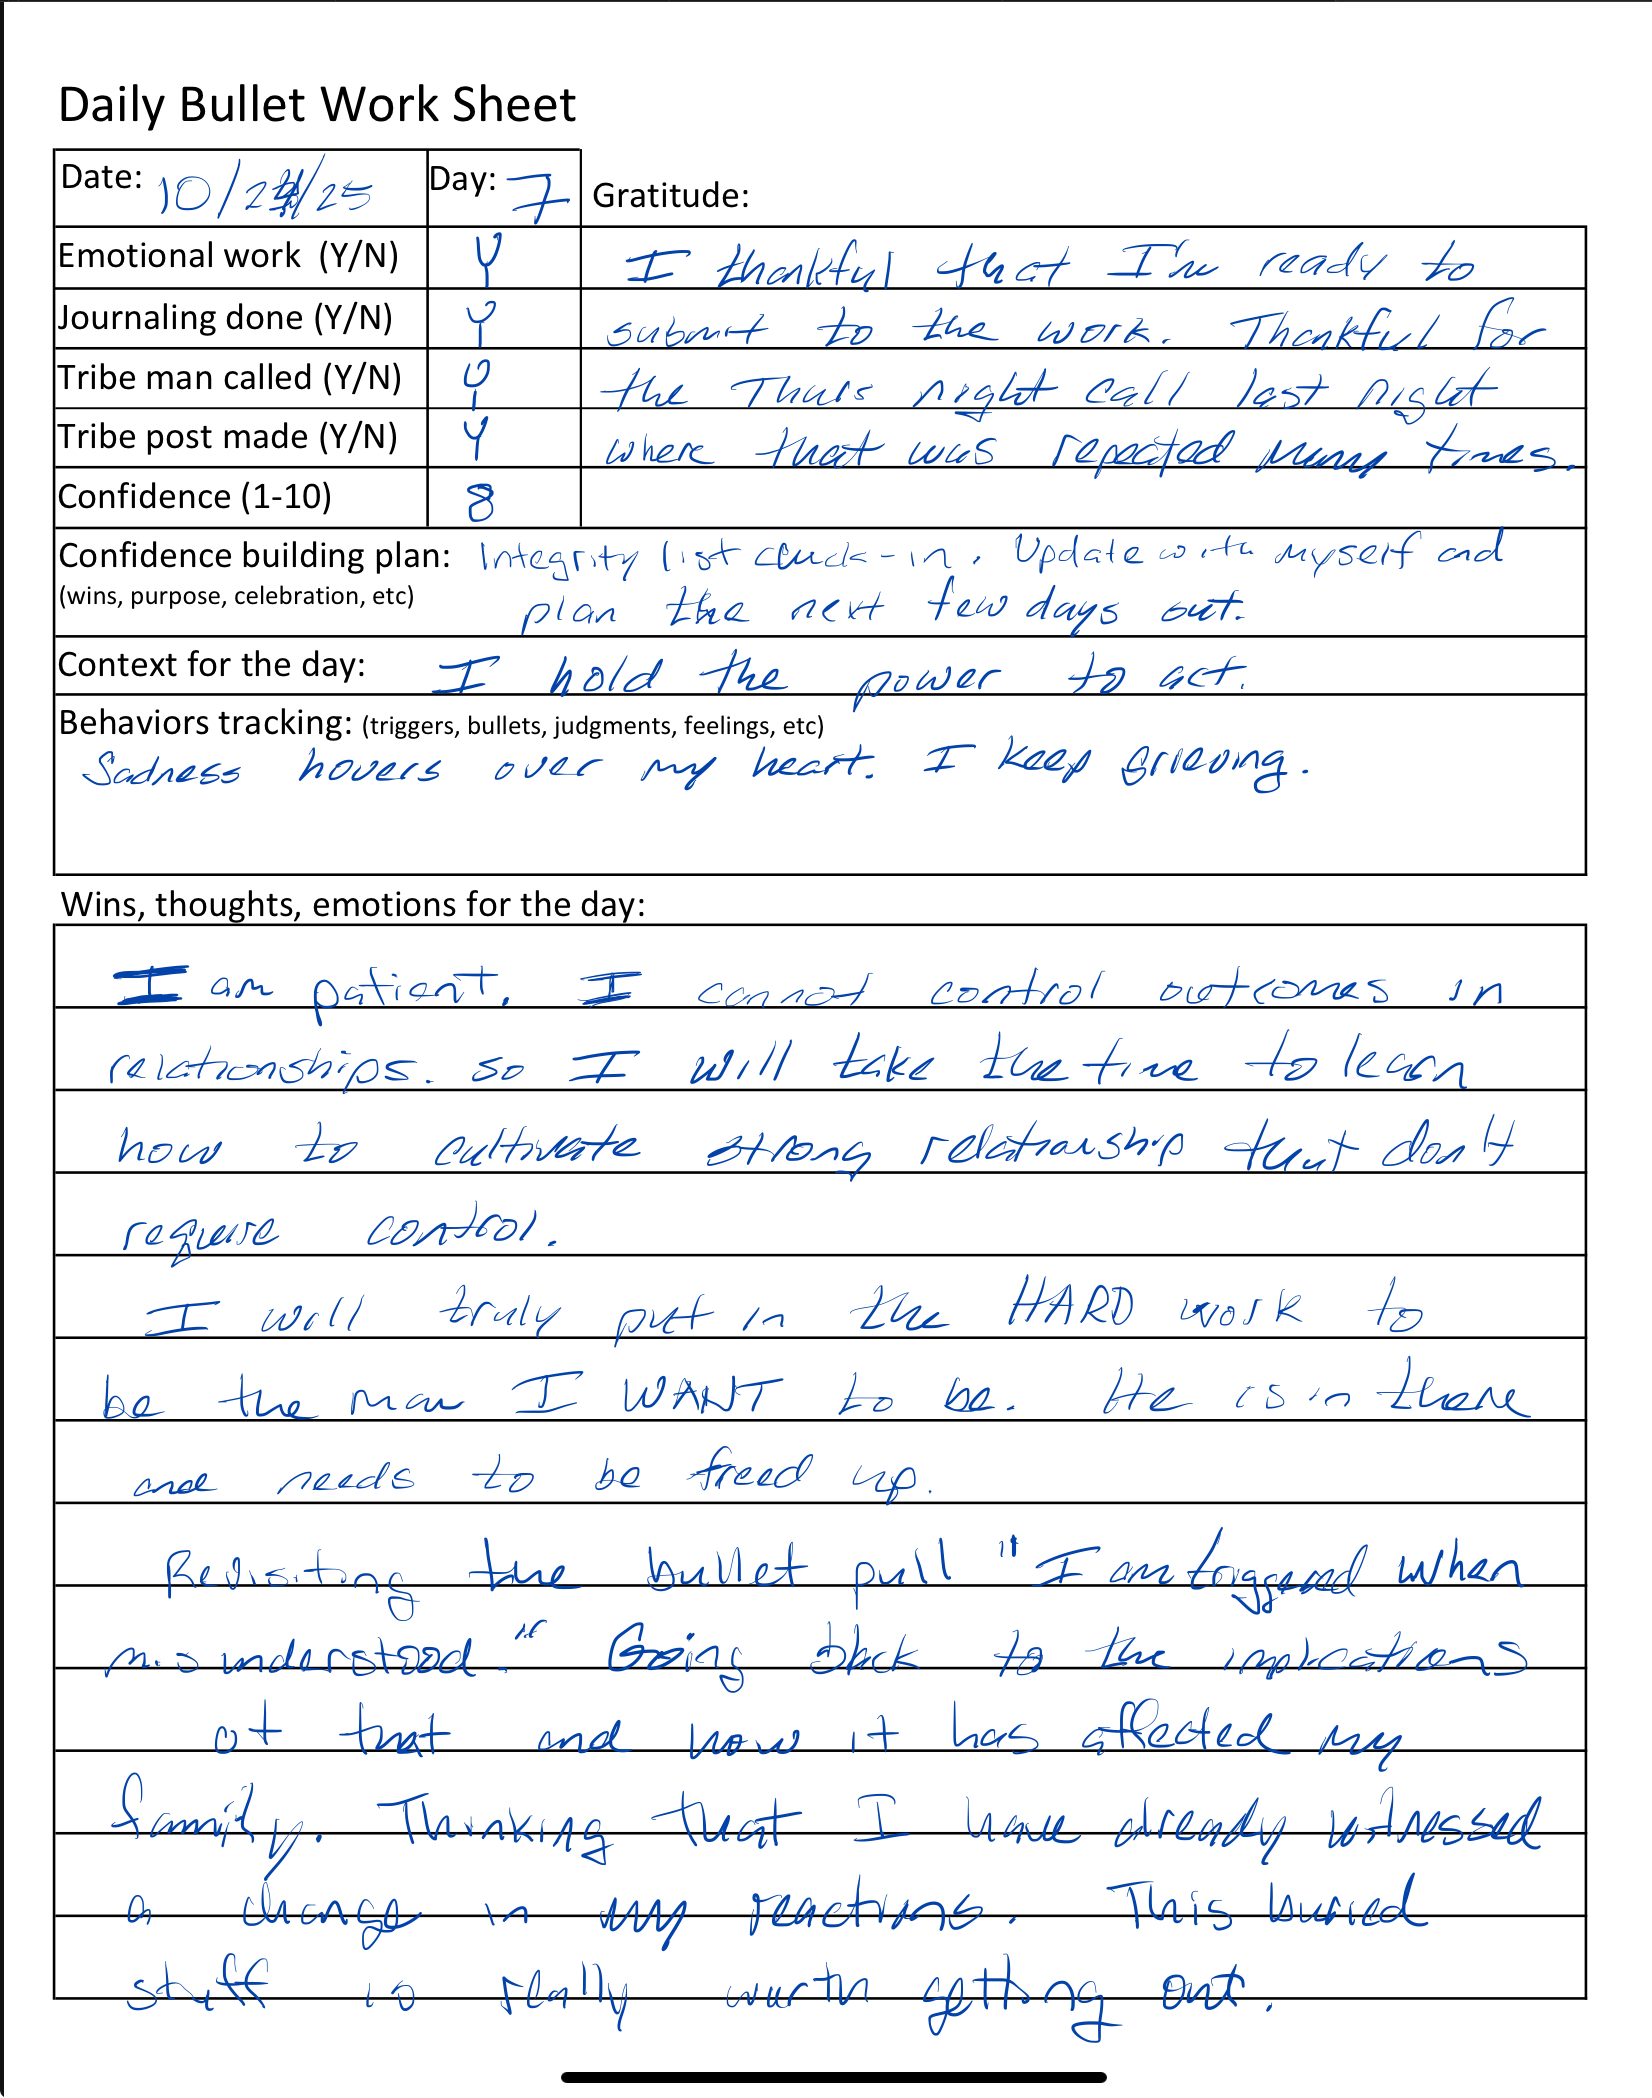 Daily Bullet Work Sheet
Date: 10/24/25 Day: 7 Gratitude:
Emotional work (Y/N) Y I thankful that I'm ready to
Journaling done (Y/N) Y submit to the work. Thankful for
Tribe man called (Y/N) Y the Thurs night call last night
Tribe post made (Y/N) Y where that was repeated many times.
Confidence (1-10) 8
Confidence building plan: Integrity list check-in. Update with myself and
(wins, purpose, celebration, etc) plan the next few days out.
Context for the day: I hold the power to act.
Behaviors tracking: (triggers, bullets, judgments, feelings, etc)
Sadness hovers over my heart. I keep grieving.
Wins, thoughts, emotions for the day:
I am patient. I cannot control outcomes in
relationships. so I will take the time to learn
how to cultivate strong relationship that don't
require control.
I will truly put in the HARD work to
be the man I WANT to be. He is in there
and needs to be freed up.
Revisiting the bullet pull "I am triggered when
misunderstood." Going back to the implications
of that and how it has affected my
family. Thinking that I have already witnessed
a change in my reactions. This buried
stuff is really worth getting out.